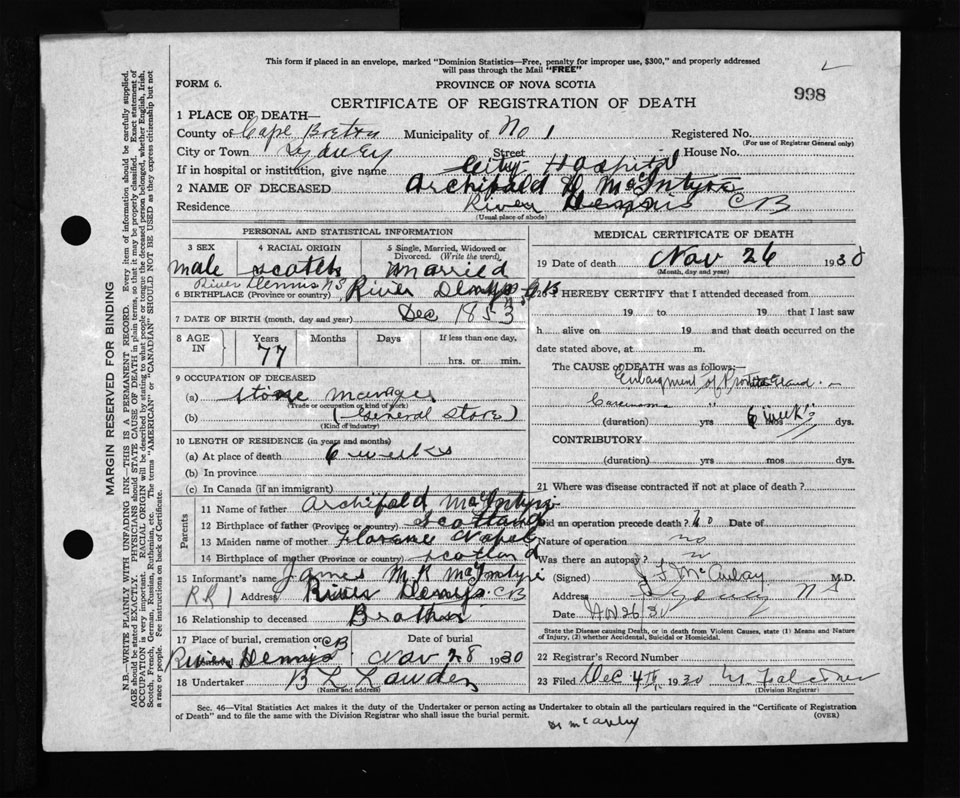 This form if placed in an envelope, marked "Dominion Statistics—Free, penalty for improper use, $300," and properly addressed
will pass through the Mail "FREE"
FORM 6.
PROVINCE OF NOVA SCOTIA
998
CERTIFICATE OF REGISTRATION OF DEATH
1 PLACE OF DEATH—
County of Cape Breton Municipality of No 1 Registered No.
(For use of Registrar General only)
City or Town Sydney Street House No.
If in hospital or institution, give name City Hospital
2 NAME OF DECEASED Archibald McIntyre
Residence River Dennis CB
(Usual place of abode)
PERSONAL AND STATISTICAL INFORMATION
3 SEX 4 RACIAL ORIGIN 5 Single, Married, Widowed or Divorced. (Write the word)
male Scotch married
River Dennis NS
6 BIRTHPLACE (Province or country) River Denys CB
7 DATE OF BIRTH (month, day and year) Dec 1853
8 AGE IN Years Months Days If less than one day,
77 hrs. or min.
9 OCCUPATION OF DECEASED
(a) store manager
(Trade or occupation or kind of work)
(b) (General Store)
(Kind of industry)
10 LENGTH OF RESIDENCE (in years and months)
(a) At place of death 6 weeks
(b) In province
(c) In Canada (if an immigrant)
Parents
11 Name of father Archibald McIntyre
12 Birthplace of father (Province or country) Scotland
13 Maiden name of mother Florance
14 Birthplace of mother (Province or country) Scotland
15 Informant's name James M. R McIntyre
RR 1 Address River Denys CB
16 Relationship to deceased Brother
17 Place of burial, cremation or Date of burial
CB
River Denys Nov 28 1930
18 Undertaker B L Lawder
(Name and address)
MEDICAL CERTIFICATE OF DEATH
19 Date of death Nov 26 1930
(Month, day and year)
20 I HEREBY CERTIFY that I attended deceased from
19 to 19 that I last saw
h alive on 19 and that death occurred on the
date stated above, at m.
The CAUSE OF DEATH was as follows:—
Enlargment of Prostate Gland
Carcinoma "
(duration) yrs 6 weeks mos dys.
CONTRIBUTORY
(duration) yrs mos dys.
21 Where was disease contracted if not at place of death?
Did an operation precede death? no Date of
Nature of operation no
Was there an autopsy? no
(Signed) McAulay M.D.
Address Sydney N S
Date Nov 26 30
State the Disease causing Death, or in death from Violent Causes, state (1) Means and Nature
of Injury, (2) whether Accidental, Suicidal or Homicidal.
22 Registrar's Record Number
23 Filed Dec 4th 1930
(Division Registrar)
Sec. 46—Vital Statistics Act makes it the duty of the Undertaker or person acting as Undertaker to obtain all the particulars required in the "Certificate of Registration
of Death" and to file the same with the Division Registrar who shall issue the burial permit.
(OVER)
Dr McAulay
MARGIN RESERVED FOR BINDING
N.B.—WRITE PLAINLY WITH UNFADING INK—THIS IS A PERMANENT RECORD. Every item of information should be carefully supplied.
AGE should be stated EXACTLY. PHYSICIANS should STATE CAUSE OF DEATH in plain terms, so that it may be properly classified. Exact statement of
OCCUPATION is very important. RACIAL ORIGIN will be described by stating to what people or tongue the deceased person belonged, whether English, Irish,
Scotch, French, German, Russian, Ruthenian, etc. The terms "AMERICAN" or "CANADIAN" SHOULD NOT BE USED as they express citizenship but not
a race or people. See instructions on back of Certificate.